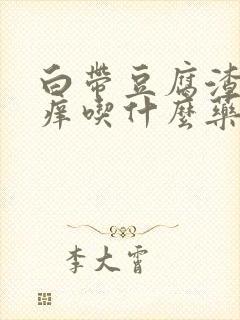 白带豆腐渣
痒喫什麽藥
李大霄